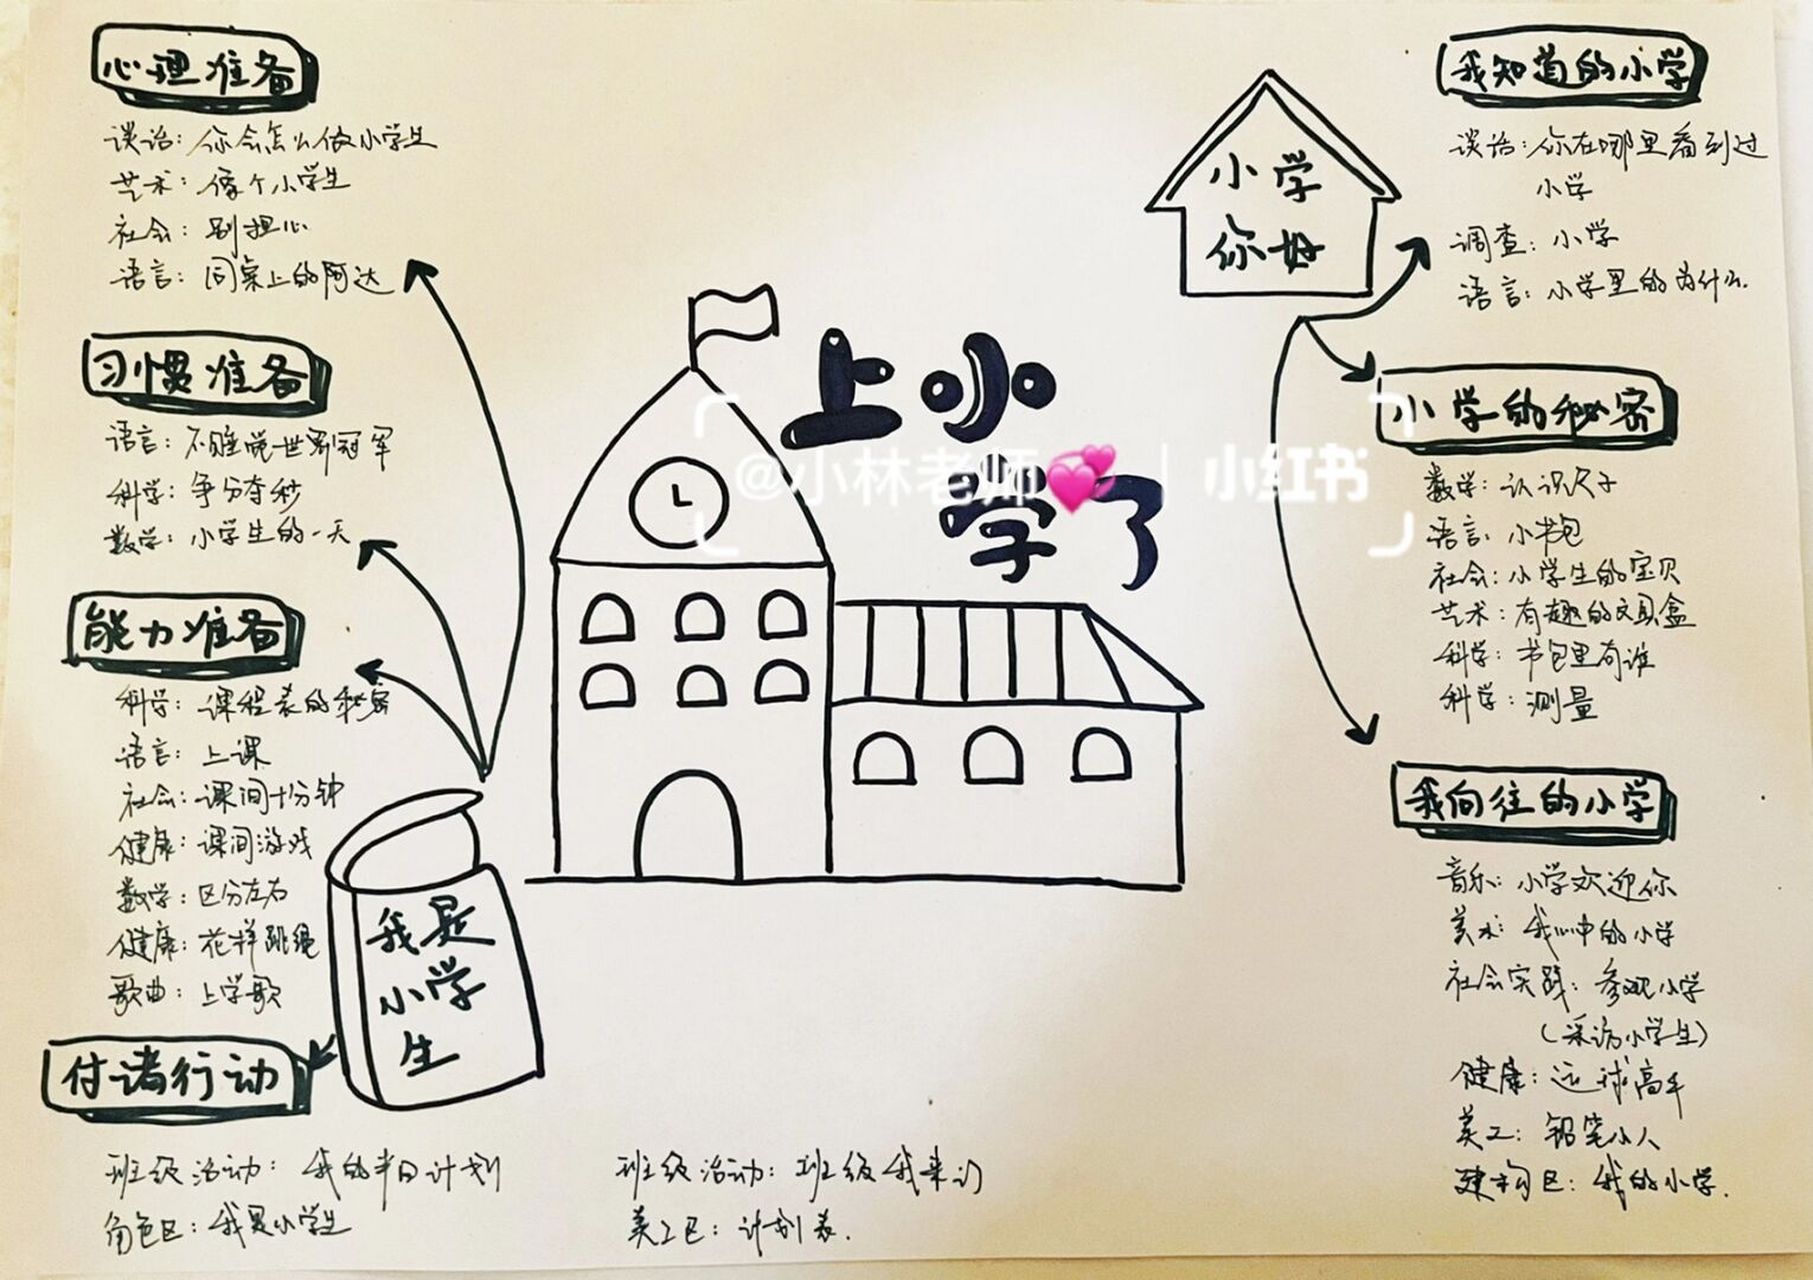 心理准备
谈话：你会怎么做小学生
艺术：像个小学生
社会：别担心
语言：同桌上的阿达
习惯准备
语言：不睡觉世界冠军
科学：争分夺秒
数学：小学生的一天
能力准备
科学：课程表的秘密
语言：上课
社会：课间十分钟
健康：课间游戏
数学：区分左右
健康：花样跳绳
歌曲：上学歌
付诸行动
班级活动：我的半日计划
角色区：我是小学生
班级活动：班级我来
美工区：计划表.
我是
小学
生
上小
学了
@小林老师 | 小红书
小学
你好
我知道的小学
谈话：你在哪里看到过
小学
调查：小学
语言：小学里的为什么.
小学的秘密
数学：认识尺子
语言：小书包
社会：小学生的宝贝
艺术：有趣的文具盒
科学：书包里有谁
科学：测量
我向往的小学
音乐：小学欢迎你
美术：我心中的小学
社会实践：参观小学
（采访小学生）
健康：运球高手
美工：铅笔小人
建构区：我的小学.